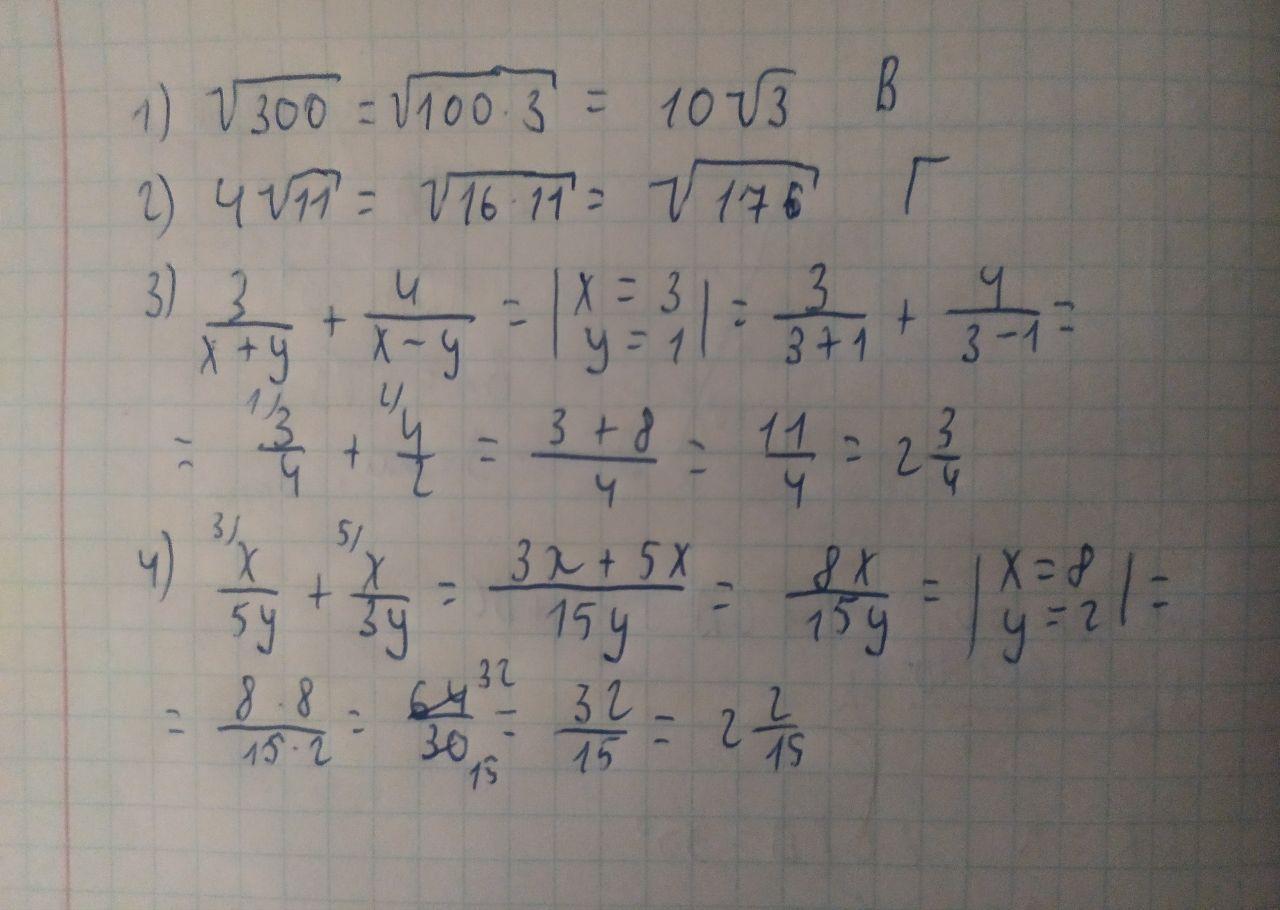 1) √300 = √100·3 = 10√3 В
2) 4√11 = √16·11 = √176 Г
3) 3/(x+y) + 4/(x-y) = |x = 3 y = 1| = 3/(3+1) + 4/(3-1) =
= 1/ 3/4 + 4/2 = (3+8)/4 = 11/4 = 2 3/4
4) 3/ x/5y + 5/ x/3y = (3x + 5x)/15y = 8x/15y = |x = 8 y = 2| =
= (8·8)/(15·2) = 64/30 32 15 = 32/15 = 2 2/15